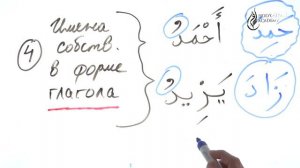 4
Имена
собств.
в форме
глагола
أَحْمَدُ حَمِدَ
يَزِيدُ زَادَ